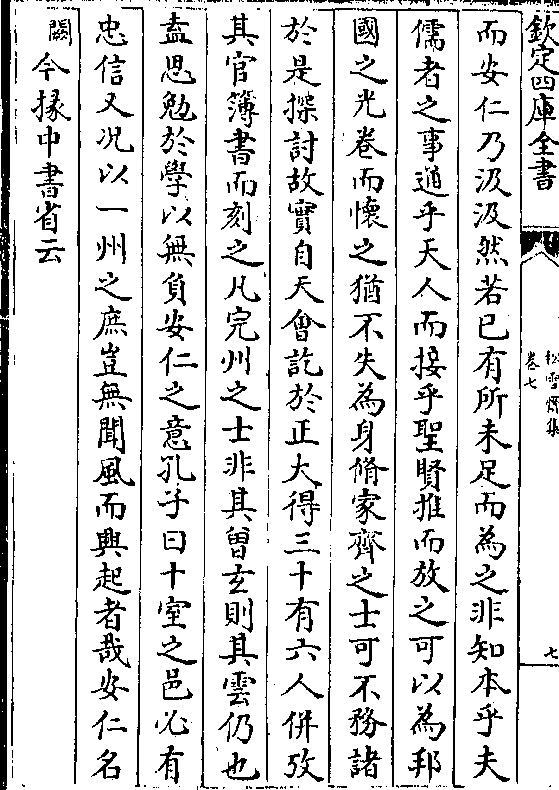 欽定四庫全書
松雪齋集
卷七
七
而安仁乃汲汲然若已有所未足而為之非知本乎夫
儒者之事通乎天人而接乎聖賢推而放之可以為邦
國之光卷而懷之猶不失為身脩家齊之士可不務諸
於是探討故實自天會訖於正大得三十有六人併攷
其官簿書而刻之凡完州之士非其曽玄則其雲仍也
盍思勉於學以無負安仁之意孔子曰十室之邑必有
忠信又况以一州之庶豈無聞風而興起者哉安仁名
闕今掾中書省云